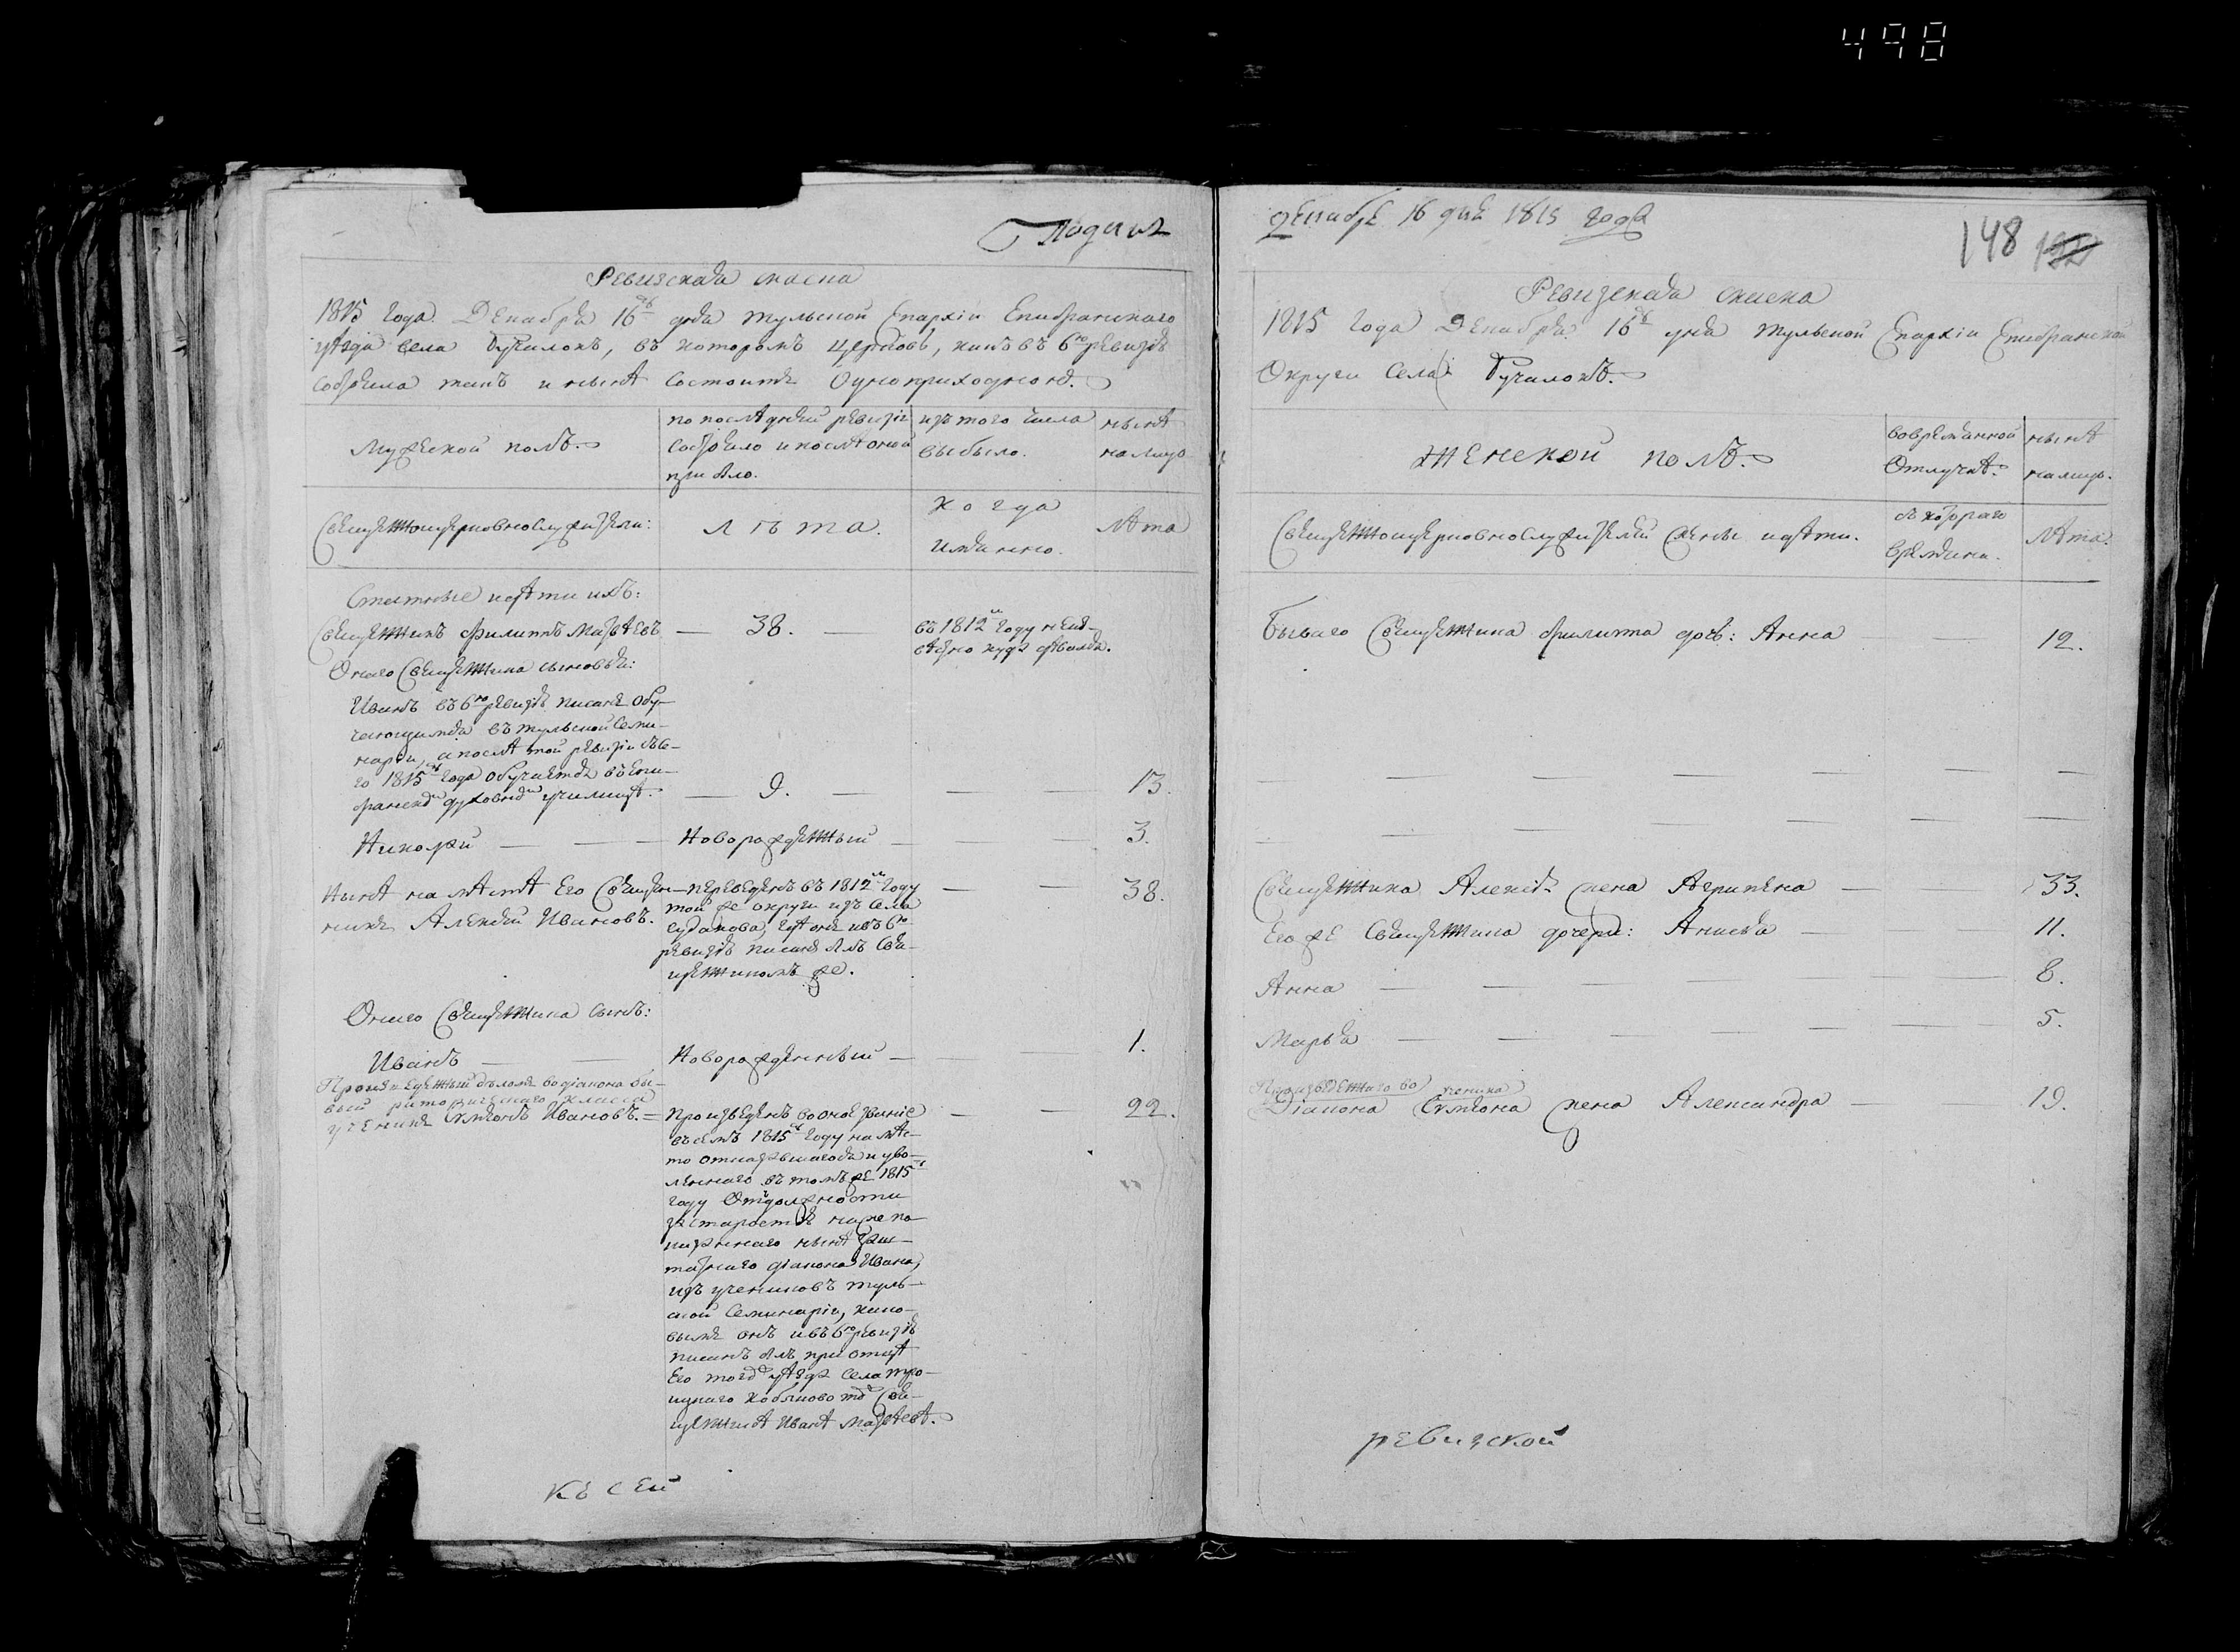 498
Подана
декабря 16 дня 1815 года
148
Ревизская скаска
1815 года Декабря 16го дня Тульской Епархіи Епифанскаго
уѣзда села Бучалокъ, въ которомъ церковь, какъ въ 6ю ревизію
состояла такъ и нынѣ состоитъ Одноприходною.
Мужеской полъ.
по послѣдней ревизіи
состояло и послѣ оной
прибыло.
изъ того числа
выбыло.
нынѣ
на лицо
Священноцерковнослужители:
лѣта.
когда
имянно.
лѣта
Статные и дѣти ихъ:
Священникъ Филиппъ Матвѣевъ — 38. —
въ 1812м году неиз-
вѣстно куда
Онаго Священника сыновья:
Иванъ въ 6ю ревизію писанъ обу-
чающимся въ Тульской Семи-
наріи, а послѣ той ревизіи съ се-
го 1815го года обучается въ Епи-
фанскомъ духовномъ училищѣ. — 9. — 13.
Николай — Новорожденный — 3.
Нынѣ на мѣстѣ Его Священ-
никъ Алексѣй Ивановъ.
переведенъ въ 1812м году
той же округи изъ села
Судакова, гдѣ онъ и въ 6ю
ревизію писанъ былъ Свя-
щенникомъ же.
38.
Онаго Священника сынъ:
Иванъ — Новорожденный — 1.
Произведенный во діакона бы-
вый риторическаго класса
ученикъ Симеонъ Ивановъ.
произведенъ во оное званіе
въ семъ 1815м году на мѣс-
то отказавшагося и уво-
леннаго въ томъ же 1815м
году отъ должности
за старостію
нынѣ заш-
татнаго діакона Ивана,
изъ учениковъ Туль-
ской Семинаріи, како-
вымъ онъ и въ 6ю ревизію
писанъ былъ при отцѣ
Его того уѣзда села Тро-
ицкаго Кобяково тожъ Свя-
щенникѣ Иванѣ Матвѣевѣ.
22.
Къ сей
Ревизская скаска
1815 года Декабря 16го дня Тульской Епархіи Епифанской
Округи Села Бучалокъ.
Женской полъ.
во временной
Отлучкѣ.
нынѣ
на лицо.
Священноцерковнослужителей жены и дѣти.
съ котораго
времяни.
лѣта.
Бывшаго Священника Филиппа дочь: Анна — 12.
Священника Алексѣя жена Агрипена — 33.
Его же Священника дочери: Анисья — 11.
Анна — 8.
Марья — 5.
Произведеннаго во ученика
Діакона Симеона жена Александра — 19.
ревизской